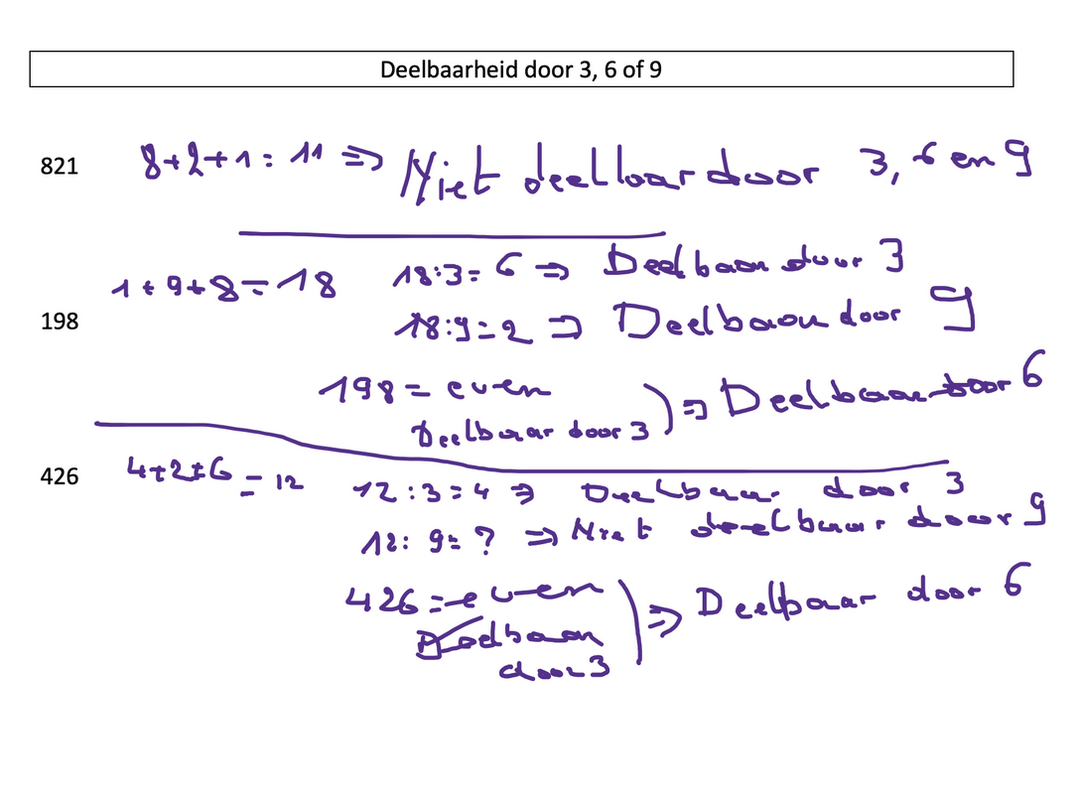 Deelbaarheid door 3, 6 of 9
821 8+2+1= 11 ⇒ Niet deelbaar door 3, 6 en 9
1+9+8=18 18:3= 6 ⇒ Deelbaar door 3
198 18:9=2 ⇒ Deelbaar door 9
198 = even
Deelbaar door 3 ) ⇒ Deelbaar door 6
426 4+2+6 = 12 12:3=4 ⇒ Deelbaar door 3
12: 9= ? ⇒ Niet deelbaar door 9
426 = even
Deelbaar ) ⇒ Deelbaar door 6
door 3